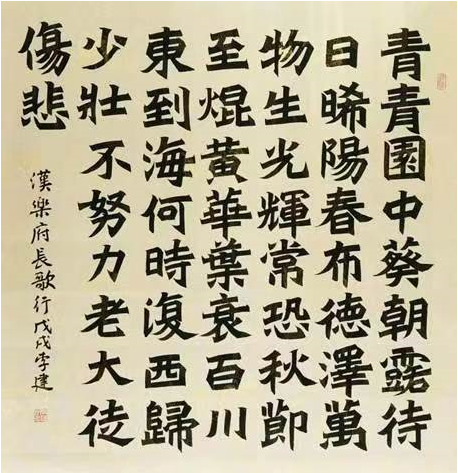 青青園中葵朝露待
日晞陽春布德澤萬
物生光輝常恐秋節
至焜黃華葉衰百川
東到海何時復西歸
少壯不努力老大徒
傷悲
漢樂府長歌行戊戌李建